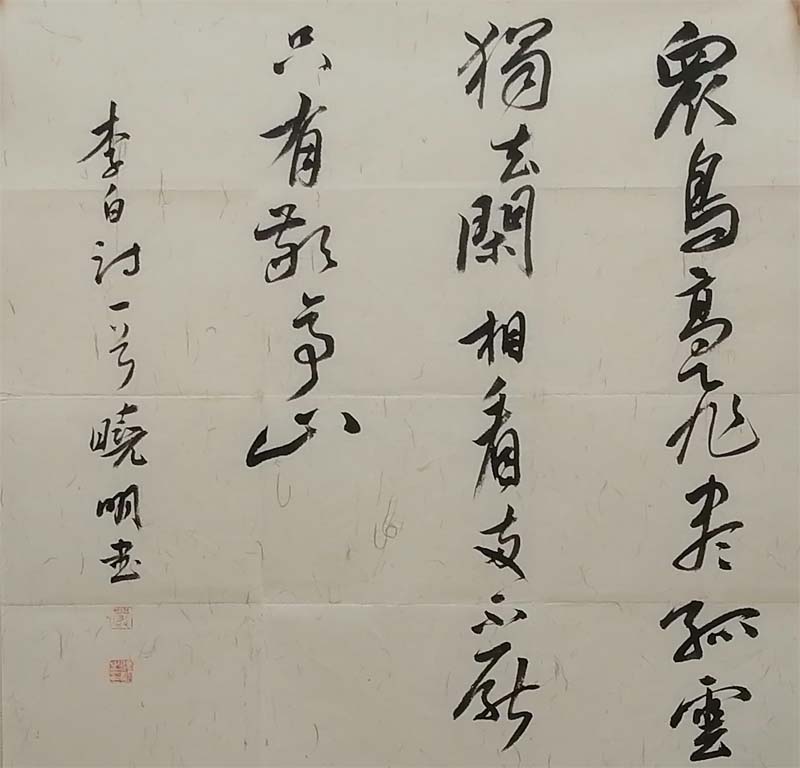 眾鳥高飛盡孤雲
獨去閑相看兩不厭
只有敬亭山
李白詩一首曉明書